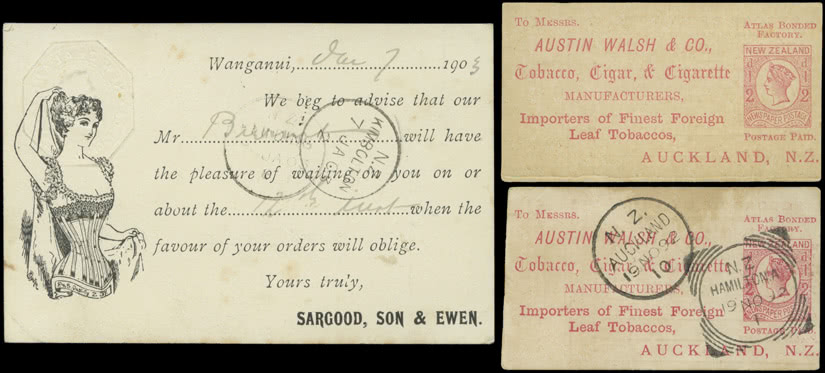 Wanganui, Jan 7 1903
We beg to advise that our
Mr will have
the pleasure of waiting on you on or
about the 12th inst when the
favour of your orders will oblige.
Yours truly,
SARGOOD, SON & EWEN.
N.Z.
KIMBOLTON
7 JA 03
To Messrs. Atlas Bonded
Factory.
AUSTIN WALSH & CO.,
Tobacco, Cigar, & Cigarette
MANUFACTURERS,
Importers of Finest Foreign
Leaf Tobaccos,
AUCKLAND, N.Z.
NEW ZEALAND
½d ½d
NEWSPAPER POSTAGE
Postage Paid.
To Messrs. Atlas Bonded
Factory.
AUSTIN WALSH & CO.,
Tobacco, Cigar, & Cigarette
MANUFACTURERS,
Importers of Finest Foreign
Leaf Tobaccos,
AUCKLAND, N.Z.
NEW ZEALAND
NEWSPAPER POSTAGE
Postage Paid.
N.Z.
AUCKLAND
19 NO 92
10
N.Z.
HAMILTON
19 NO 92
1